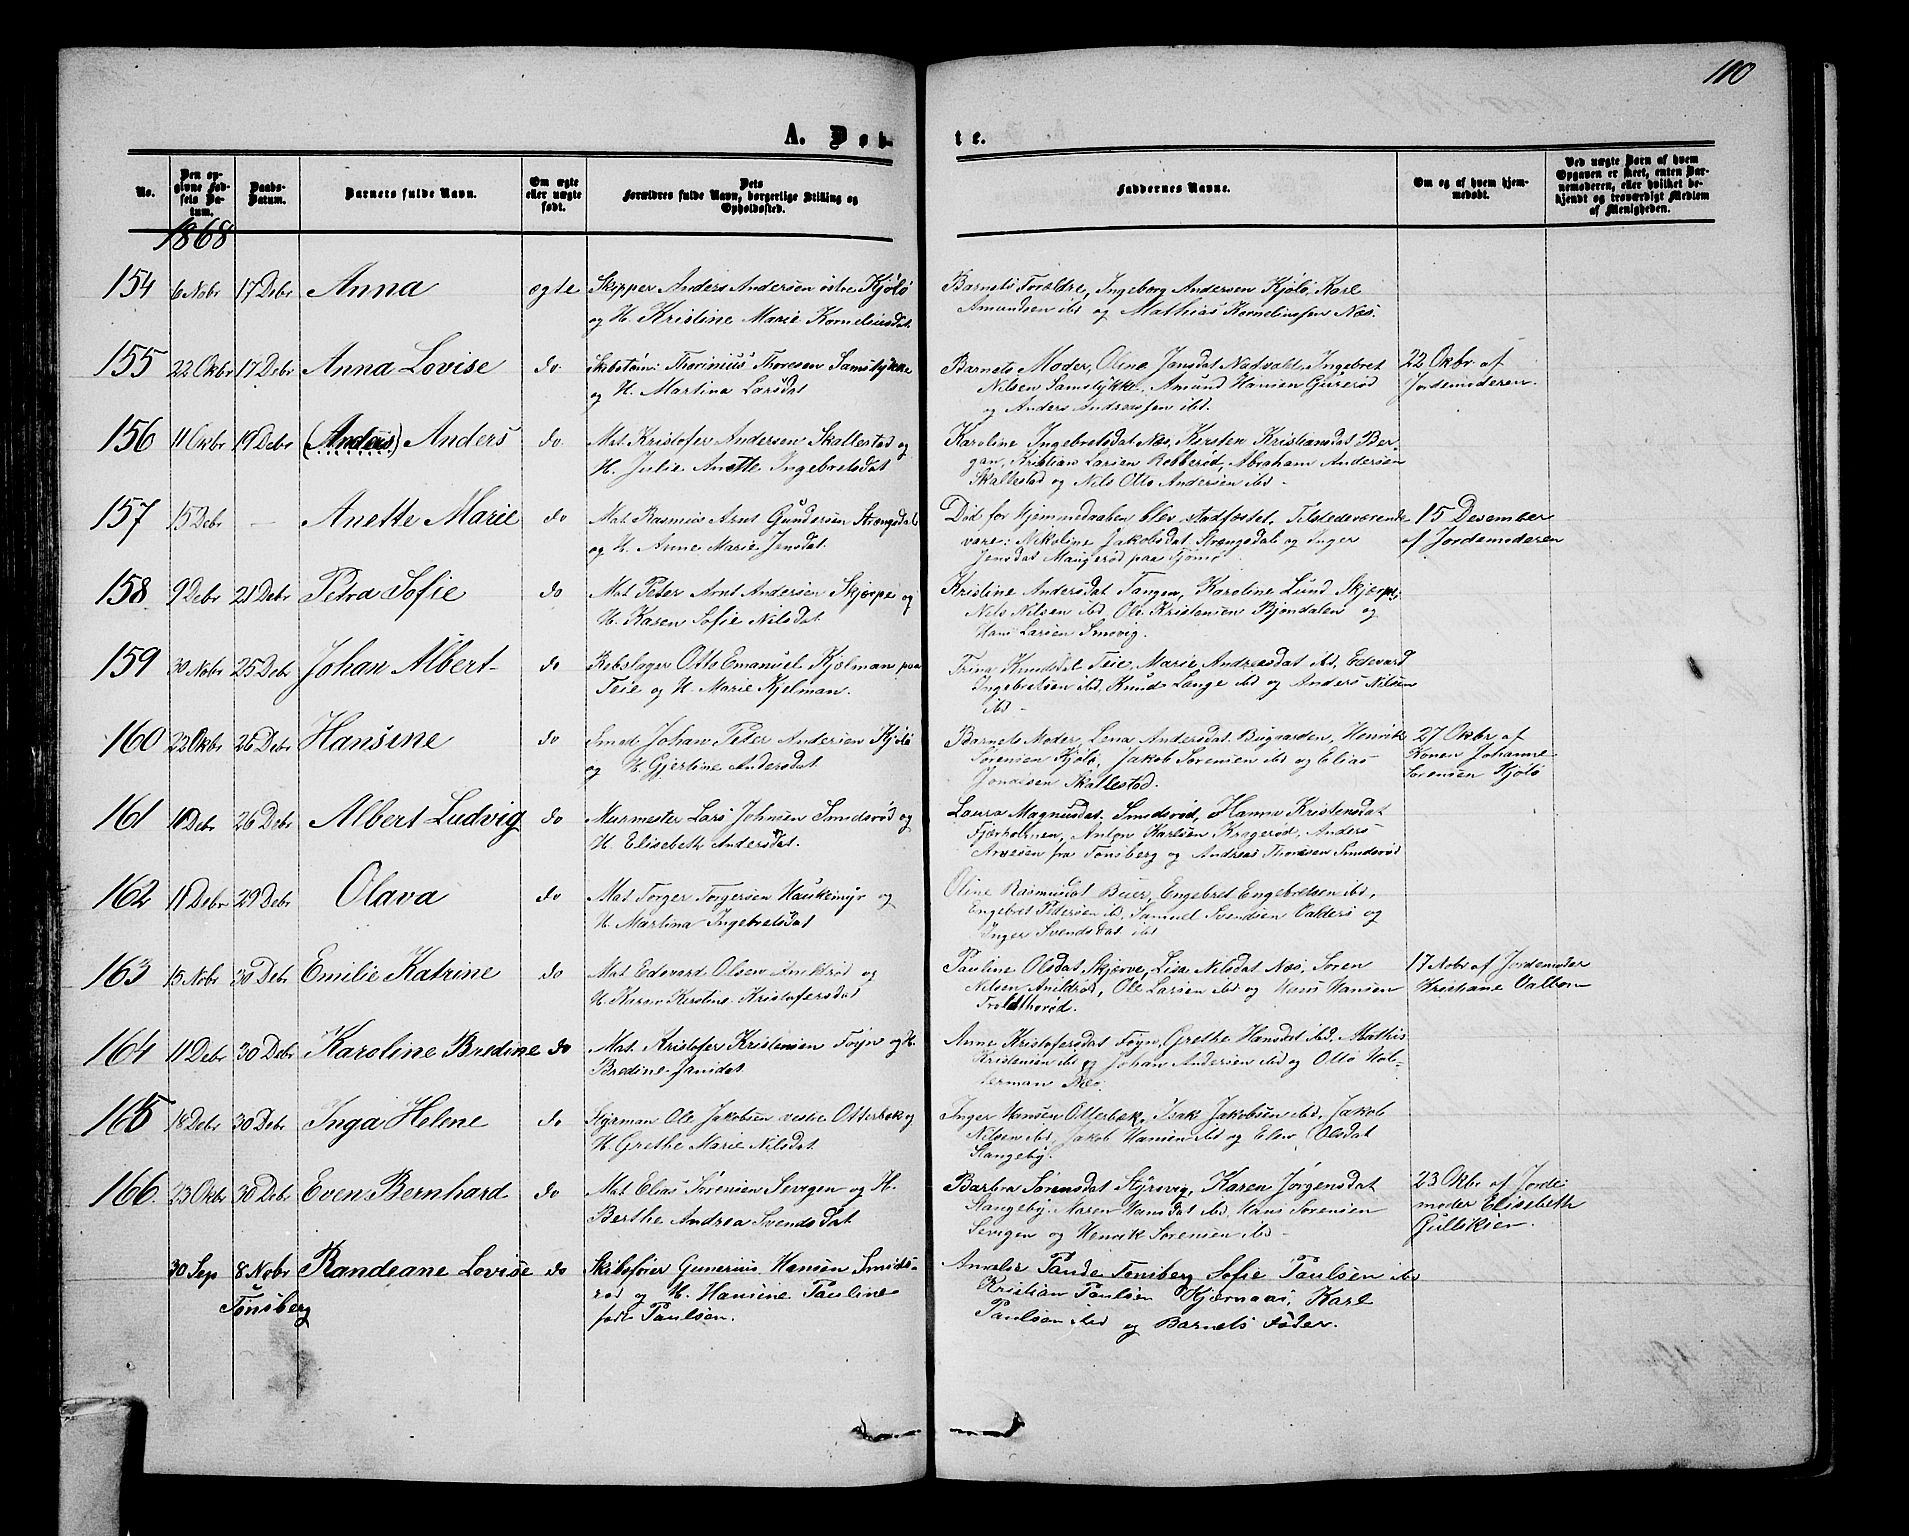 110
A. Døb-
te.
No.
Den op-
givne Fød-
sels Da-
tum.
Daabs-
Datum.
Barnets fulde Navn.
Om ægte
eller uægte
født.
Dets
Forældres fulde Navn, borgerlige Stilling og
Opholdssted.
Faddernes Navne.
Om og af hvem hjem-
medøbt.
Ved uægte Børn af hvem
Opgaven er skeet, enten Bar-
nemoderen, eller hvilket be-
kjendt og troværdigt Medlem
af Menigheden.
1868
154 6 Nobr 17 Debr Anna ægte Skipper Anders Andersen østre Kjøle
og H. Kristine Marie Kornelusdat
Barnets Forældre, Ingeborg Andersen Kjøle, Karl
Amundsen ibd og Mathias Kornelius­sen Næs.
155 22 Okbr 17 Debr Anna Lovise do. Skibstøm: Thorinius Thoresen Samstykke
og H. Martina Larsdat
Barnets Moder, Oline Jansdat Nadvald, Ingebret
Nilsen Samstykke, Amund Hansen Gürerød
og Anders Andreassen ibd.
22 Okbr af
Jordemoderen.
156 11 Okbr 19 Debr (Anders) Anders do Mat. Kristofer Andersen Skallestad og
H. Julie Anette Ingebretsdat
Karoline Ingebretsdat Næs, Kirsten Kristiansdat Ber-
gan, Kristian Larsen Robberød, Abraham Andersen
Skallestad og Nils Otto Andersen ibd -
157 15 Debr - Anette Marie do Mat. Rasmus Arnt Gundersen Strengsdal
og H. Anne Marie Jensdat.
Død før Hjemmedaaben blev stadfæstet. Tilstedeværende
vare: Nikoline Jakobsdat Strengsdal og Inger
Jensdat Maugerød paa Tjømø
15 Desember
af Jordemoderen
158 9 Debr 21 Debr Petra Sofie do Mat Peter Arnt Andersen Skjerpe og
H. Karen Sofie Nilsdat
Kristine Andersdat Tangen, Karoline Lund Skjerpe,
Nils Nilsen ibd, Ole Kristensen Bjøndalen og
Hans Larsen Smovig.
159 30 Nobr 25 Debr Johan Albert do Rebslager Otto Emanuel Kjelman paa
Teie og H. Marie Kjelman.
Trina Knudsdat Teie, Marie Andreasdat ibd, Edevard
Ingebretsen ibd, Knud Lange ibd og Anders Nilsen
ibd -
160 22 Okbr 26 Debr Hansine do Smed Johan Peter Andersen Kjøle
og H. Gjertine Andersdat
Barnets Moder, Lena Andersdat Bugaarden, Henrik
Sørensen Kjøle, Jakob Sørensen ibd og Elias
Jonassen Skallestad.
27 Okbr af
Konen Johanne
Sørensen Kjøle
161 10 Debr 26 Debr Albert Ludvig do Murmester Lars Johnsen Smidsrød og
H. Elisebeth Andersdat.
Laura Magnusdat Smidsrød, Hanna Kristensdat
Fjærholmen, Anton Karlsen Kragerød, Anders
Arnesen fra Tønsberg og Andreas Thoresen Smidsrød
162 11 Debr 29 Debr Olava do Mat Torger Torgersen Haukemyr og
H. Martina Ingebretsdat
Oline Rasmusdat Buer, Engebret Engebretsen ibd,
Engebret Pedersen ibd, Samuel Svendsen Valders og
Inger Svendsdat ibd
163 15 Nobr 30 Debr Emilie Katrine do Mat Edevard Olsen Anildrød og
H. Karen Kirstine Kristofersdat
Pauline Olsdat Skjerve, Lisa Nilsdat Næs, Søren
Nilsen Anildrød, Ole Larsen ibd og Hans Hansen
17 Nobr af Jordemoder
Kristiane Valbon-
164 11 Debr 30 Debr Karoline Bredine do Mat. Kristofer Kristensen Føyn og H.
Bredine Jansdat
Anne Kristofersdat Føyn, Grethe Hansdat ibd, Mathis
Kristensen ibd og Johan Andersen ibd og Otto Hol-
terman Næs.
165 18 Debr 30 Debr Inga Helene do Styrman Ole Jakobsen vestre Otterbæk og
H. Grethe Marie Nilsdat
Inger Hansen Otterbæk, Isak Jakobsen ibd, Jakob
Nilsen ibd, Jakob Hansen ibd og Elen Olsdat
Stangeby.
166. 23 Okbr 30 Debr Even Bernhard do Mat Elias Sørensen Sevigen og H.
Berthe Andrea Svendsdat
Barbra Sørensdat Styrsvig, Karen Jørgensdat
Stangeby, Maren Hansdat ibd, Hans Sørensen
Sevigen og Henrik Sørensen ibd -
23 Okbr af Jorde
moder Elisebeth
Gulliksen.
30 Sep 8 Nobr Randeane Lovise do Skibsfører Gunerius Hansen Smids-
Tønsberg rød og H. Hansine Pauline
født Paulsen.
Amalie Pande Tønsberg Sofie Paulsen ibd
Kristian Paulsen Kjærnaas, Karl
Paulsen ibd og Barnets Fader.